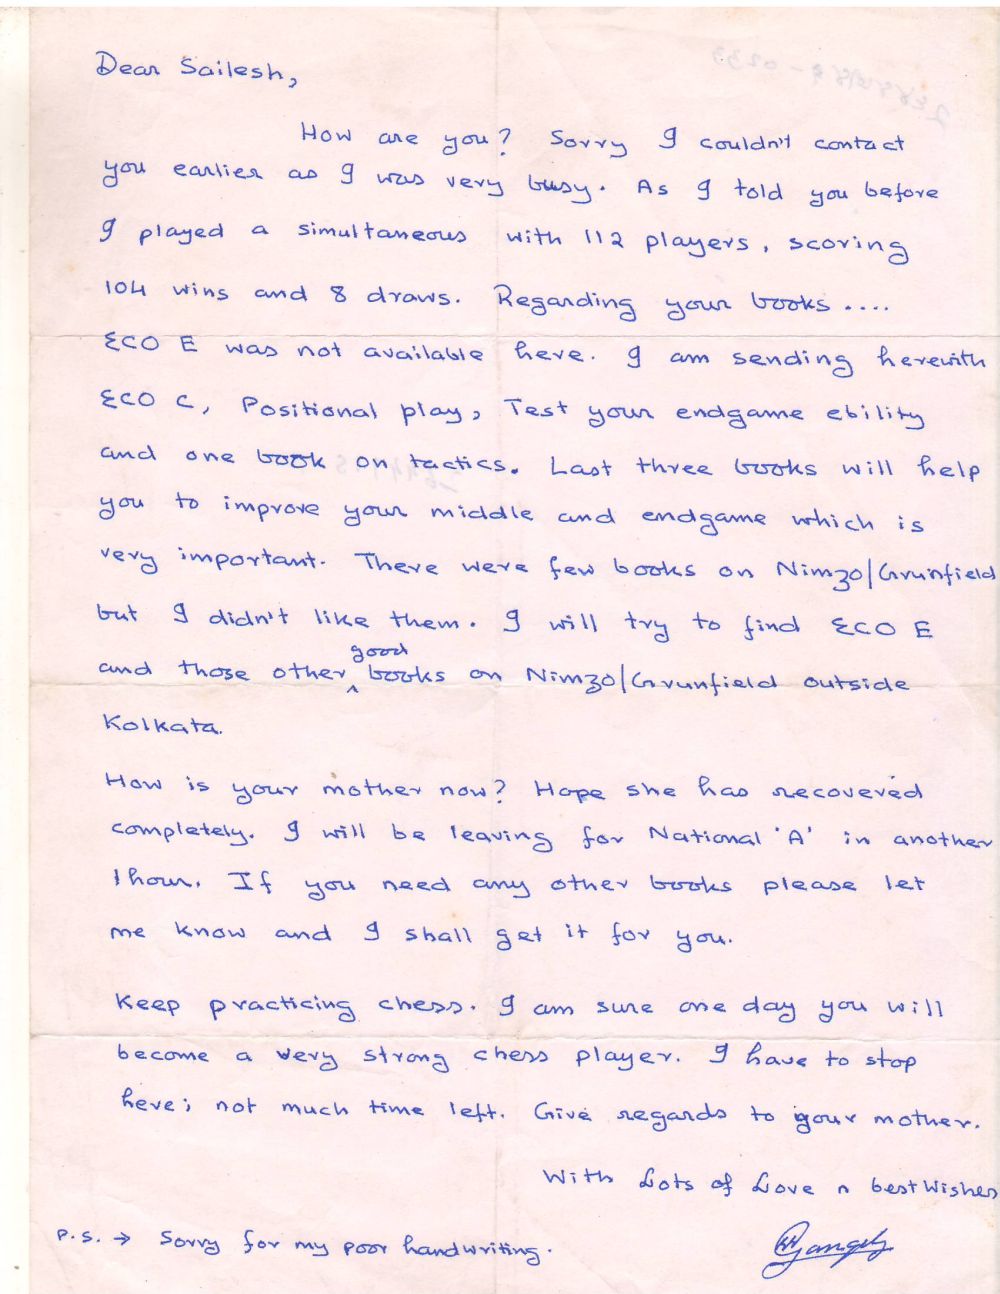 Dear Sailesh,
How are you? Sorry I couldn't contact
you earlier as I was very busy. As I told you before
I played a simultaneous with 112 players, scoring
104 wins and 8 draws. Regarding your books ....
ECO E was not available here. I am sending herewith
ECO C, Positional play, Test your endgame ebility
and one book on tactics. Last three books will help
you to improve your middle and endgame which is
very important. There were few books on Nimzo/Grunfield
but I didn't like them. I will try to find ECO E
and those other good books on Nimzo/Grunfield outside
Kolkata.
How is your mother now? Hope she has recovered
completely. I will be leaving for National 'A' in another
1 hour. If you need any other books please let
me know and I shall get it for you.
Keep practicing chess. I am sure one day you will
become a very strong chess player. I have to stop
here; not much time left. Give regards to your mother.
With Lots of Love n best Wishes
P.S. → Sorry for my poor handwriting.